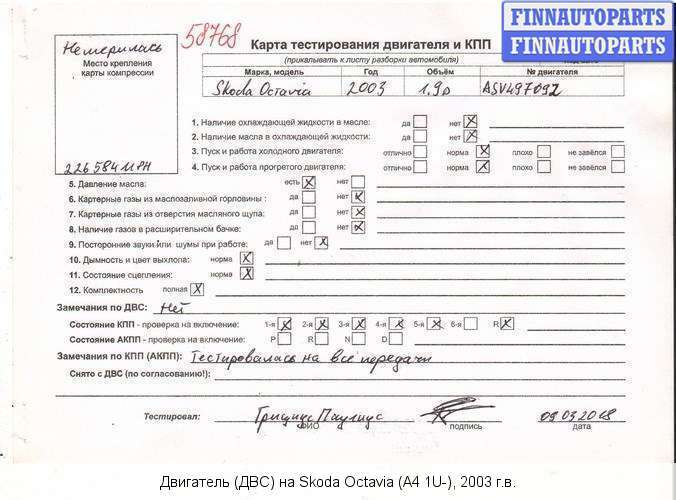 FINNAUTOPARTS
FINNAUTOPARTS
58768
Не мерилась
Место крепления
карты компрессии
226584 МРН
Карта тестирования двигателя и КПП
(прикалывать к листу разборки автомобиля)
Марка, модель Год Объём № двигателя
Skoda Octavia 2003 1.9D ASV497092
1. Наличие охлаждающей жидкости в масле: да нет X
2. Наличие масла в охлаждающей жидкости: да нет X
3. Пуск и работа холодного двигателя: отлично норма X плохо не завёлся
4. Пуск и работа прогретого двигателя: отлично норма X плохо не завёлся
5. Давление масла: есть X нет
6. Картерные газы из маслозаливной горловины : да нет X
7. Картерные газы из отверстия масляного щупа: да нет X
8. Наличие газов в расширительном бачке: да нет X
9. Посторонние звуки или шумы при работе: да нет X
10. Дымность и цвет выхлопа: норма X
11. Состояние сцепления: норма X
12. Комплектность полная X
Замечания по ДВС: Нет
Состояние КПП - проверка на включение: 1-я X 2-я X 3-я X 4-я X 5-я X 6-я R X
Состояние АКПП - проверка на включение: P R N D
Замечания по КПП (АКПП): Тестировалась на все передачи
Снято с ДВС (по согласованию!):
Тестировал: Грицюс Паулиус 09.03.2018
ФИО подпись дата
Двигатель (ДВС) на Skoda Octavia (A4 1U-), 2003 г.в.